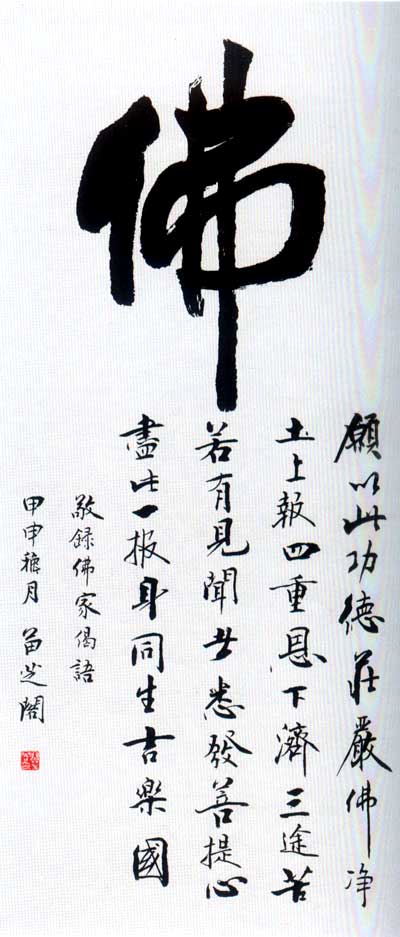 佛
願以此功德莊嚴佛净
土上報四重恩下濟三途苦
若有見聞者悉發菩提心
盡此一報身同生吉樂國
敬録佛家偈語
甲申月 芝閣